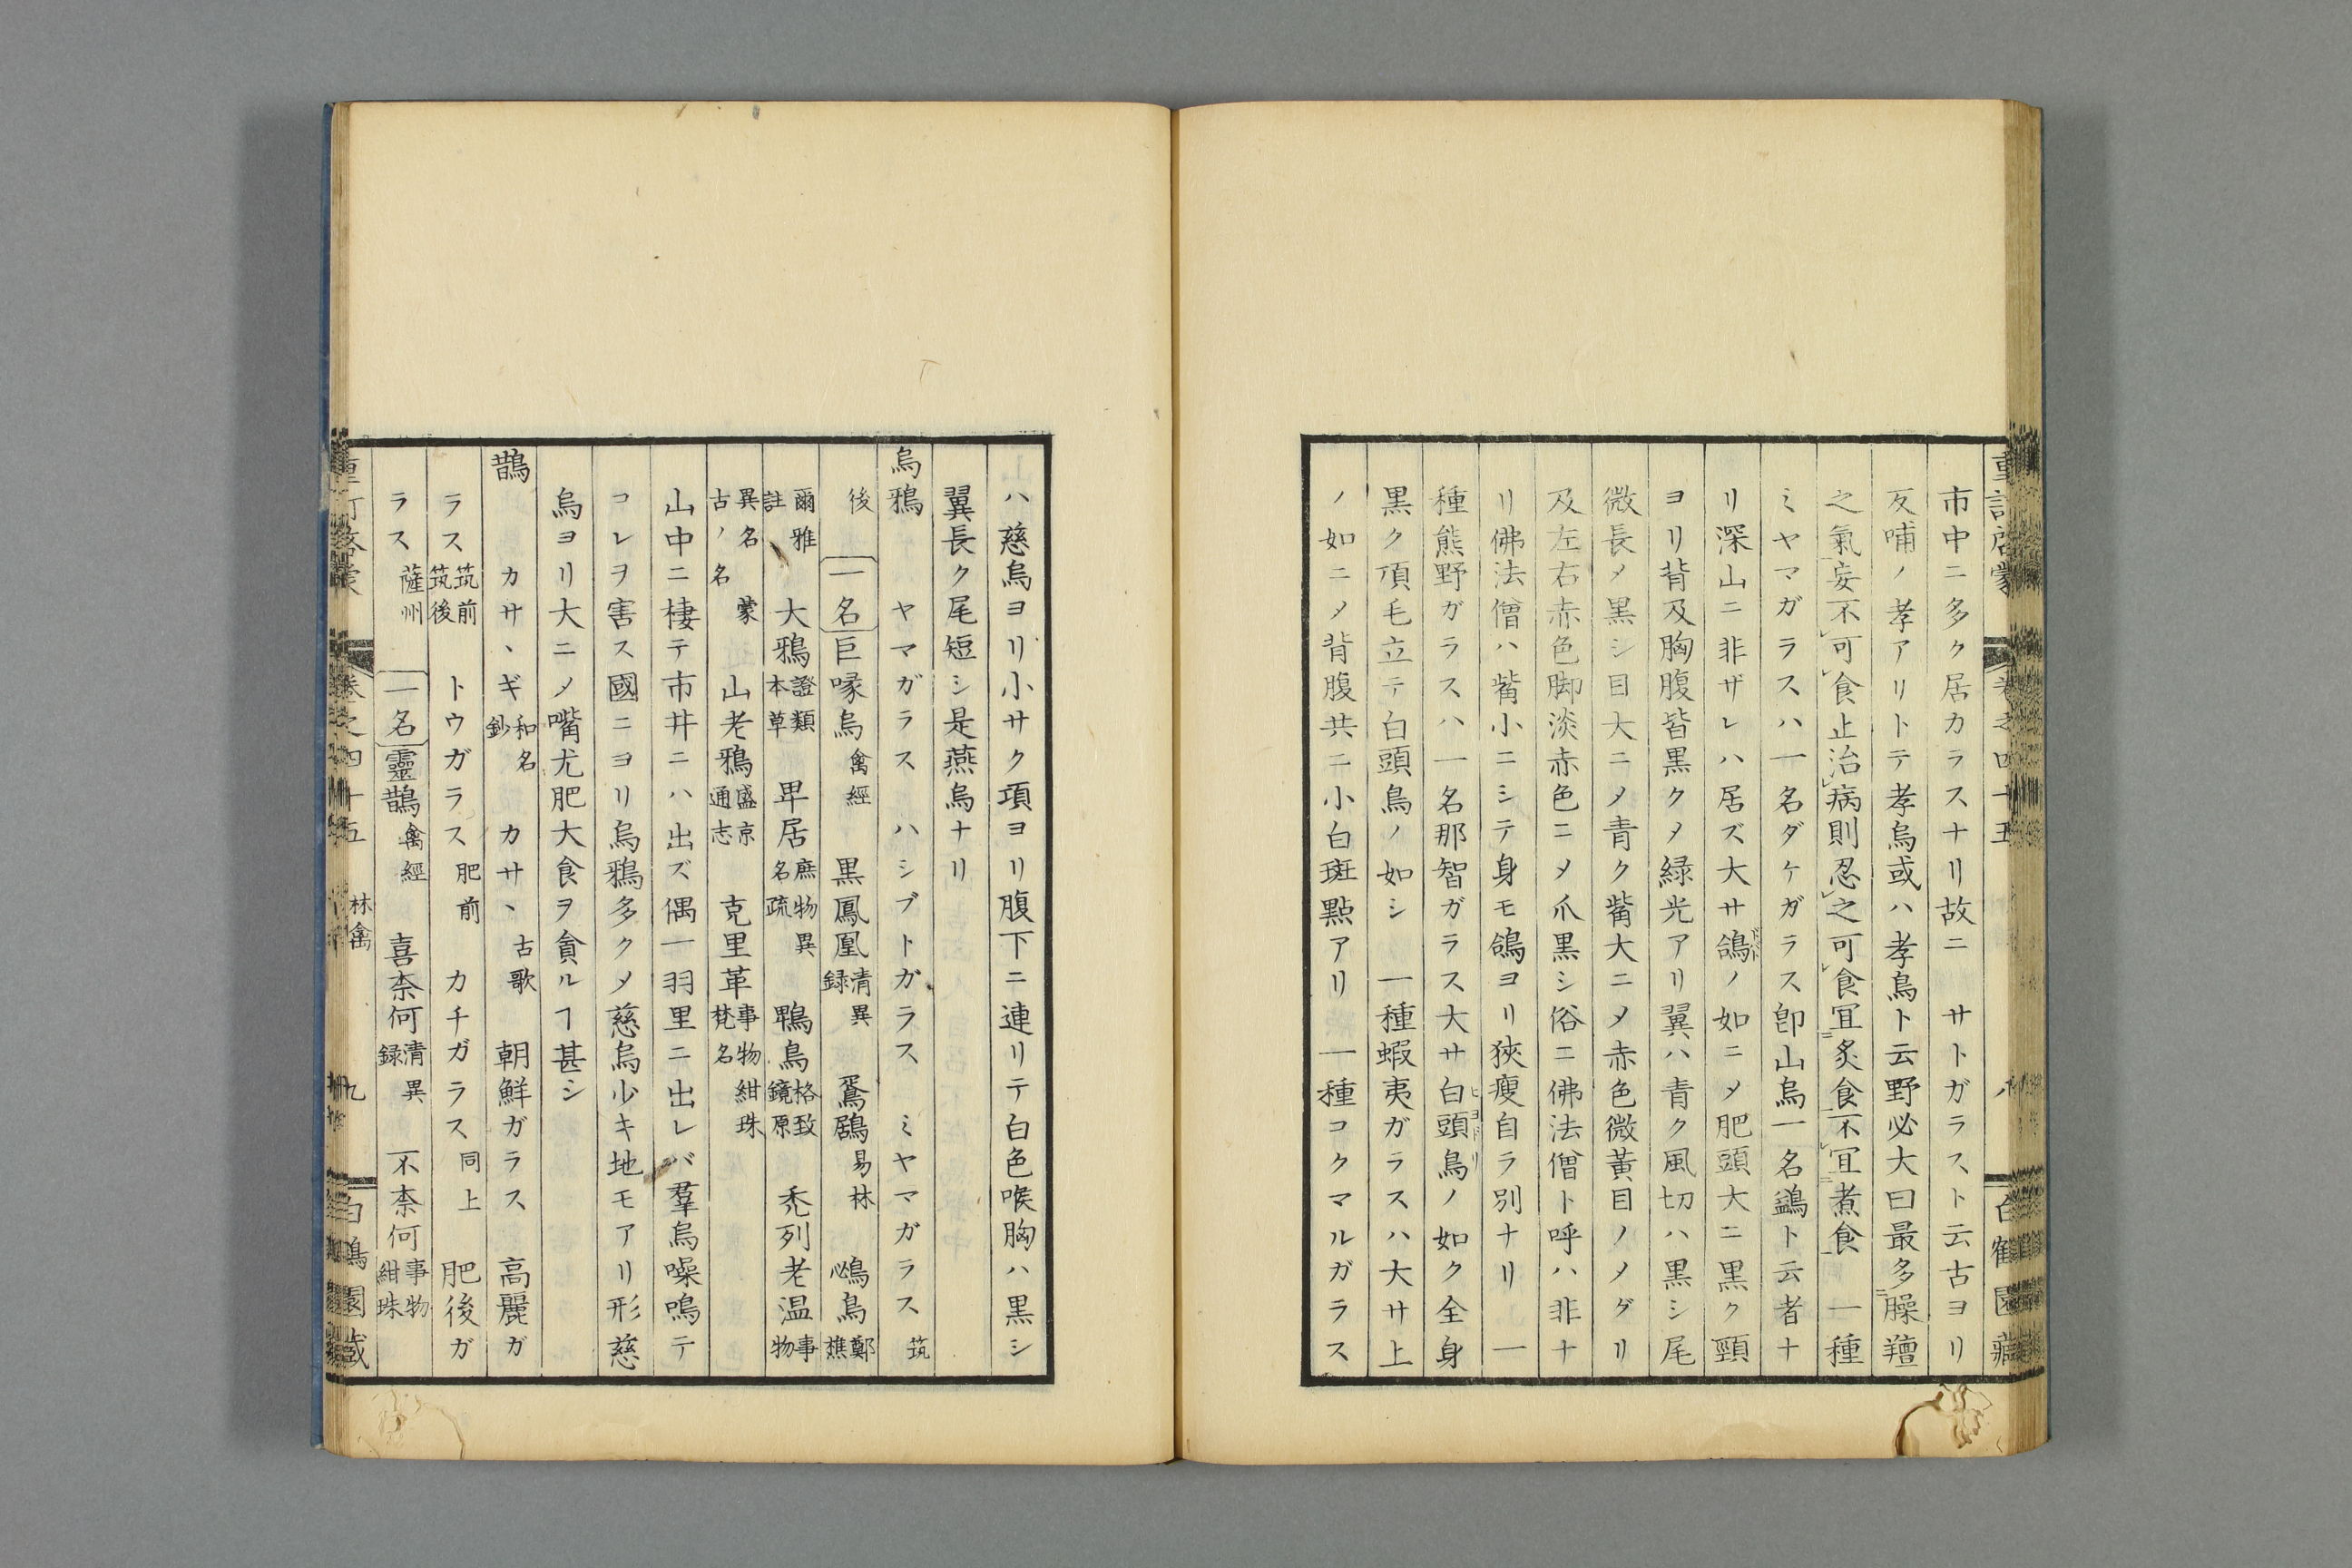 市中ニ多ク居カラスナリ故ニ　サトガラスト云古ヨリ
反哺ノ孝アリトテ孝烏或ハ孝鳥ト云野必大曰最多臊羶
之氣妄不可食止治病則忍之可食冝炙食不冝煮食　一種
ミヤマガラスハ一名ダケガラス卽山烏一名鷁ト云者ナ
リ深山ニ非ザレハ居ズ大サ鴿ノ如ニメ肥頭大ニ黒ク頸
ヨリ背及胸腹皆黒クメ緑光アリ翼ハ青ク風切ハ黒シ尾
微長メ黒シ目大ニメ青ク觜大ニメ赤色微黃目ノメダリ
及左右赤色脚淡赤色ニメ爪黒シ俗ニ佛法僧ト呼ハ非ナ
リ佛法僧ハ觜小ニシテ身モ鴿ヨリ狹瘦自ラ別ナリ　一
種熊野ガラスハ一名那智ガラス大サ白頭鳥ノ如ク全身
黒ク頂毛立テ白頭鳥ノ如シ　一種蝦夷ガラスハ大サ上
ノ如ニメ背腹共ニ小白斑點アリ　一種コクマルガラス
ハ慈烏ヨリ小サク項ヨリ腹下ニ連リテ白色喉胸ハ黒シ
翼長ク尾短シ是燕烏ナリ
烏鴉　ヤマガラス　ハシブトガラス　ミヤマガラス筑
後　一名巨喙烏禽經　黒鳳凰清異録　鴐鶋易林　鴓鳥鄭樵
爾雅註　大鴉證類本草　卑居庶物異名疏　鵯烏格致鏡原　禿列老温事物
異名古ノ名蒙　山老鴉盛京通志　克里革事物紺珠梵名
山中ニ棲テ市井ニハ出ズ偶一羽里ニ出レバ羣烏噪鳴テ
コレヲ害ス國ニヨリ烏鴉多クメ慈烏少キ地モアリ形慈
烏ヨリ大ニメ嘴尤肥大食ヲ貪ルヿ甚シ
鵲　カサヽギ和名鈔　カサヽ古歌　朝鮮ガラス　高麗ガ
ラス筑前筑後　トウガラス肥前　カチガラス同上　肥後ガ
ラス薩州　一名靈鵲禽經　喜柰何清異録　不柰何事物紺珠
卷之四十五　林禽　九